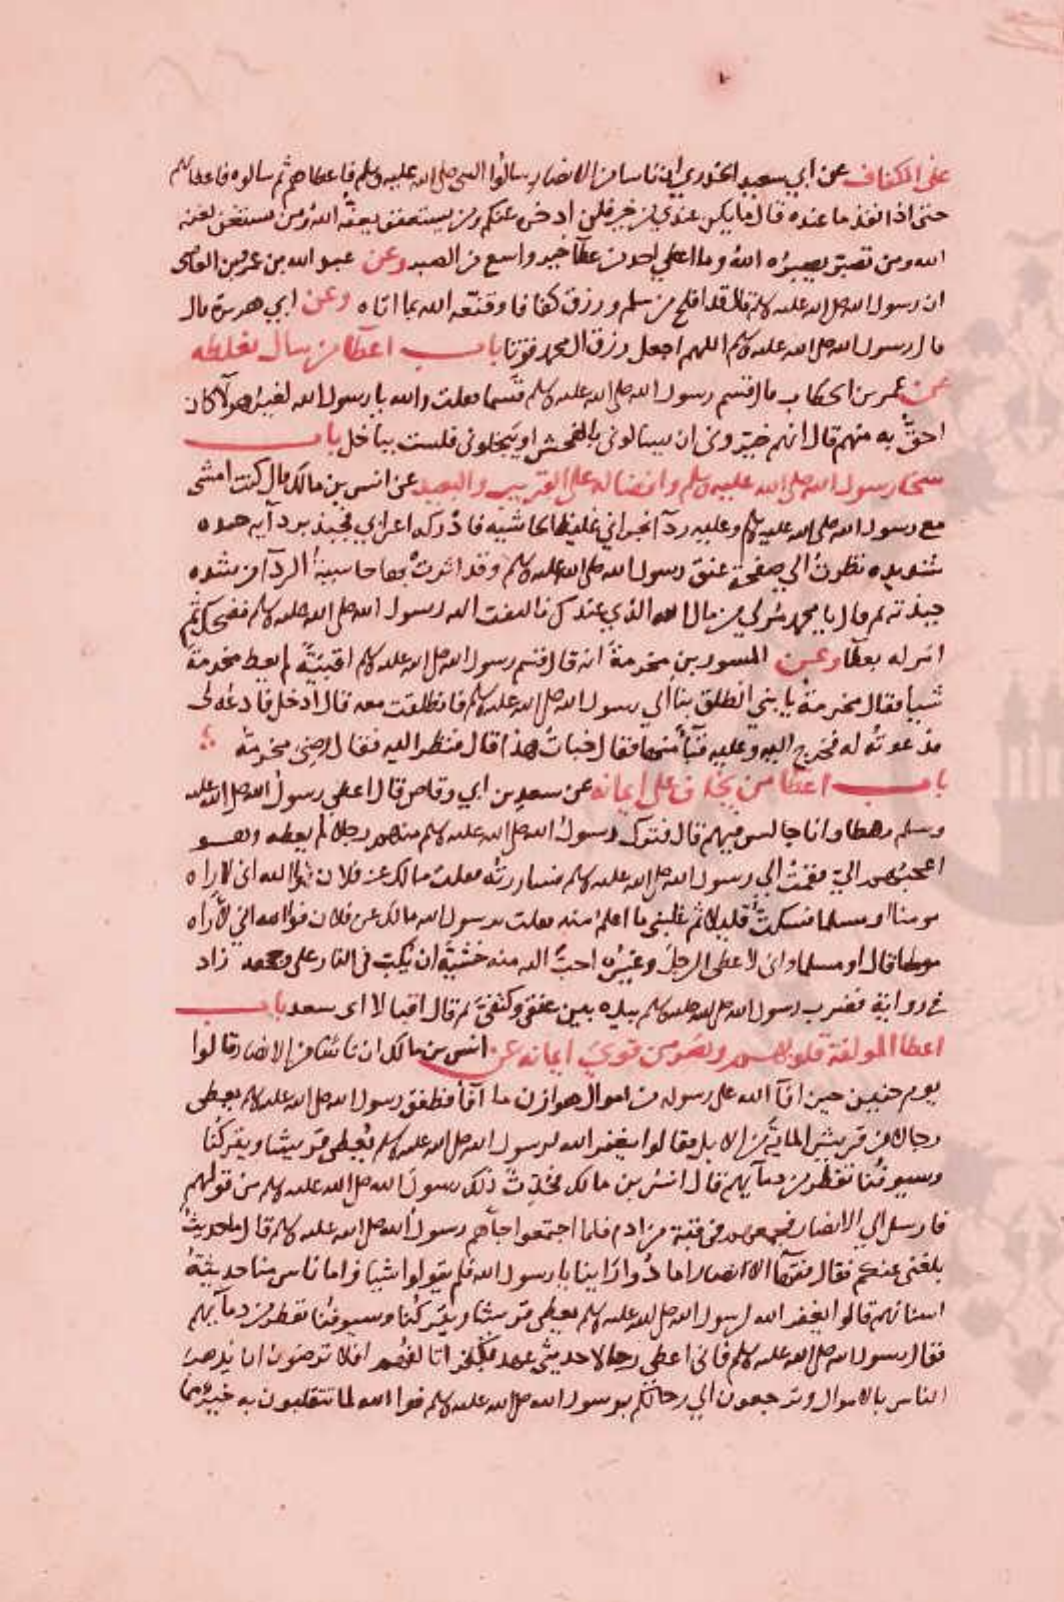 على الكفاف عن ابي سعيد الخدري ان ناسا من الانصار سالوا النبي صلى الله عليه وسلم فاعطاهم ثم سالوه فاعطاهم
حتى اذا نفد ما عنده قال ما يكن عندي من خير فلن ادخره عنكم ومن يستعفف يعفه الله ومن يستغن يغنه
الله ومن تصبر يصبره الله وما اعطي احد من عطآ خير واسع من الصبر وعن عبد الله بن عمرو بن العاصى
ان رسول الله صلى الله عليه وسلم قال قد افلح من سلم ورزق كفافا وقنعه الله بما اتاه وعن ابي هريرة قال
قال رسول الله صلى الله عليه وسلم اللهم اجعل رزق ال محمد قوتا باب اعطآ من سال بغلظه
عن عمر بن الخطاب قال قسم رسول الله صلى الله عليه وسلم قسما فقلت والله يا رسول الله لغير هولآ كان
احق به منهم قال انهم خيروني ان يسالوني بالفحش او يبخلوني فلست بباخل باب
سخا رسول الله صلى الله عليه وسلم وافضاله على القريب والبعيد عن انس بن مالك قال كنت امشي
مع رسول الله صلى الله عليه وسلم وعليه ردآ نجراني غليظ الحاشيه فادركه اعرابي فجبذ بردآيه جبذه
شديده نظرت الي صفحة عنق رسول الله صلى الله عليه وسلم وقد اثرت بها حاشية الردآ من شده
جبذته ثم قال يا محمد مر لي من مال الله الذي عندك فالتفت اليه رسول الله صلى الله عليه وسلم فضحك ثم
امر له بعطآ وعن المسور بن مخرمة انه قال قسم رسول الله صلى الله عليه وسلم اقبية ولم يعط مخرمة
شيا فقال مخرمة يا بني انطلق بنا الي رسول الله صلى الله عليه وسلم فانطلقت معه قال ادخل فادعه لي
فدعوته له فخرج اليه وعليه قبآ منها فقال خبات هذا قال فنظر اليه فقال رضي مخرمة
باب اعطا من يخاف على ايمانه عن سعد بن ابي وقاص قال اعطي رسول الله صلى الله عليه
وسلم رهطا وانا جالس فيهم قال فترك رسول الله صلى الله عليه وسلم منهم رجلا لم يعطه وهو
اعجبهم الي فقمت الي رسول الله صلى الله عليه وسلم فساررته فقلت مالك عن فلان فوالله اني لاراه
مومنا او مسلما فسكت قليلا ثم غلبني ما اعلم منه فقلت يرسول الله مالك عن فلان فوالله اني لأراه
مومنا قال او مسلما واني لاعطي الرجل وغيره احب الي منه خشية ان يكب في النار على وجهه زاد
في رواية فضرب رسول الله صلى الله عليه وسلم بيده بين عنقي وكتفي ثم قال اقتالا اي سعد باب
اعطا المولفة قلوبهم وتصبر من قوي ايمانه عن انس بن مالك ان ناسا من الانصار قالوا
يوم حنين حين افآ الله على رسوله من اموال هوازن ما افآ فطفق رسول الله صلى الله عليه وسلم يعطى
رجالا من قريش الماية من الابل فقالوا يغفر الله لرسول الله صلى الله عليه وسلم يعطى قريشا ويتركنا
وسيوفنا تقطر من دمآيهم قال انس بن مالك فحدث ذلك رسول الله صلى الله عليه وسلم من قولهم
فارسل الي الانصار فجمعهم في قبة من ادم فلما اجتمعوا جآهم رسول الله صلى الله عليه وسلم قال ما حديث
بلغني عنكم فقال فقهآ الانصار اما ذوا راينا يا رسول الله فلم يقولوا شيا واما ناس منا حديثة
اسنانهم قالوا يغفر الله لرسول الله صلى الله عليه وسلم يعطي قريشا ويتركنا وسيوفنا تقطر من دمآيهم
فقال رسول الله صلى الله عليه وسلم فاني اعطي رجالا حديثي عهد بكفر اتالفهم افلا ترضون ان يذهب
الناس بالاموال وترجعون الي رحالكم برسول الله صلى الله عليه وسلم فوالله لما تنقلبون به خير مما